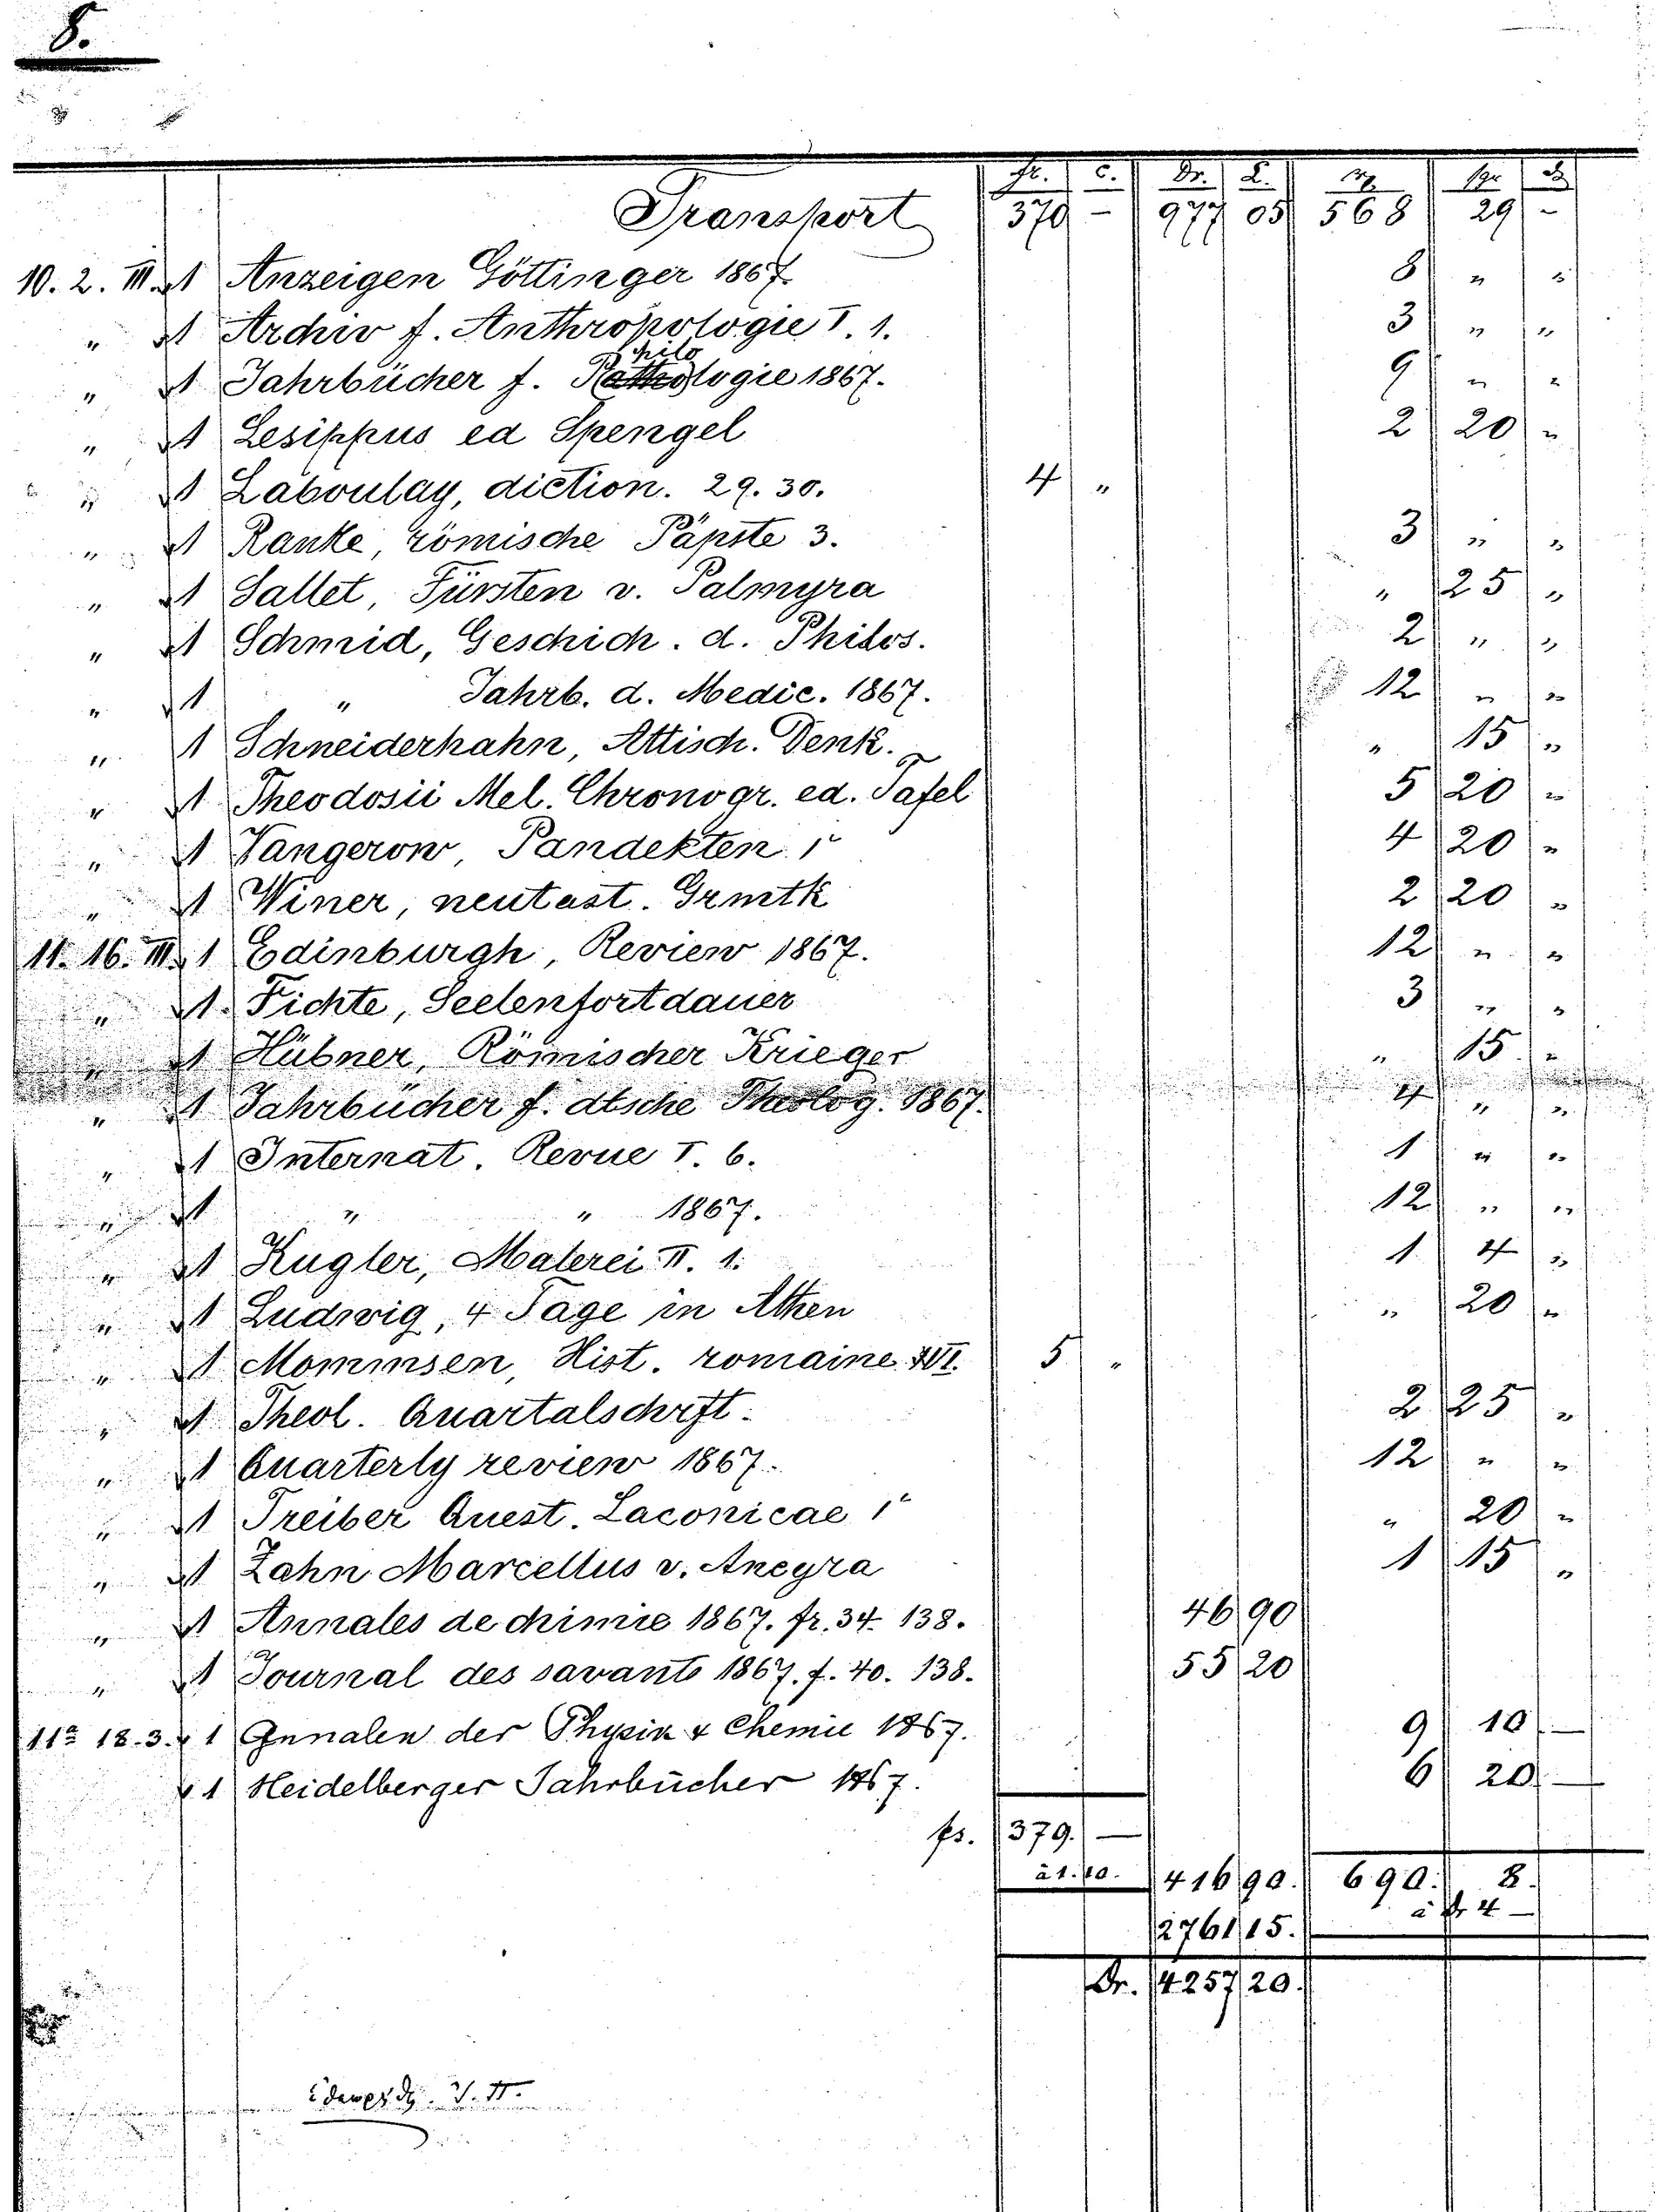 8.
fr. c. Dr. L. Sgr
Transport 370 - 977 05 568 29 -
10. 2. III. 1 Anzeigen Göttinger 1867. 8 " "
" 1 Archiv f. Anthropologie I. 1. 3 " "
" 1 Jahrbücher f. Philologie 1867. 9 " "
" 1 Lesippus ed Spengel 2 20 "
" 1 Laboulay, diction. 29. 30. 4 "
" 1 Ranke, römische Päpste 3. 3 " "
" 1 Sallet, Fürsten v. Palmyra " 25 "
" 1 Schmid, Geschich. d. Philos. 2 " "
" 1 " Jahrb. d. Medic. 1867. 12 " "
" 1 Schneiderhahn, Attisch. Denk. " 15 "
" 1 Theodosii Mel. Chronogr. ed. Tafel 5 20 "
" 1 Vangerow, Pandekten 1 4 20 "
" 1 Winer, neutast. Grmtk 2 20 "
11. 16. III. 1 Edinburgh, Review 1867. 12 " "
" 1 Fichte, Seelenfortdauer 3 " "
" 1 Hübner, Römischer Krieger " 15 "
" 1 Jahrbücher f. dtsche Theolog. 1867. 4 " "
" 1 Internat. Revue I. 6. 1 " "
" 1 " " 1867. 12 " "
" 1 Kugler, Malerei II. 1. 1 4 "
" 1 Ludwig, 4 Tage in Athen " 20 "
" 1 Mommsen, Hist. romaine VI. 5 "
" 1 Theol. Quartalschrift. 2 25 "
" 1 Quarterly review 1867. 12 " "
" 1 Treiber Quest. Laconicae 1 " 20 "
" 1 Zahn Marcellus v. Ancyra 1 15 "
" 1 Annales de chimie 1867. fr. 34. 138. 46 90
" 1 Journal des savants 1867. f. 40. 138. 55 20
11a 18. 3. 1 Annalen der Physik & Chemie 1867. 9 10 —
1 Heidelberger Jahrbücher 1867. 6 20 —
fs. 379. —
à 1.10. 416 90. 690. 8.
à Dr 4 —
2761 15.
Dr. 4257 20.